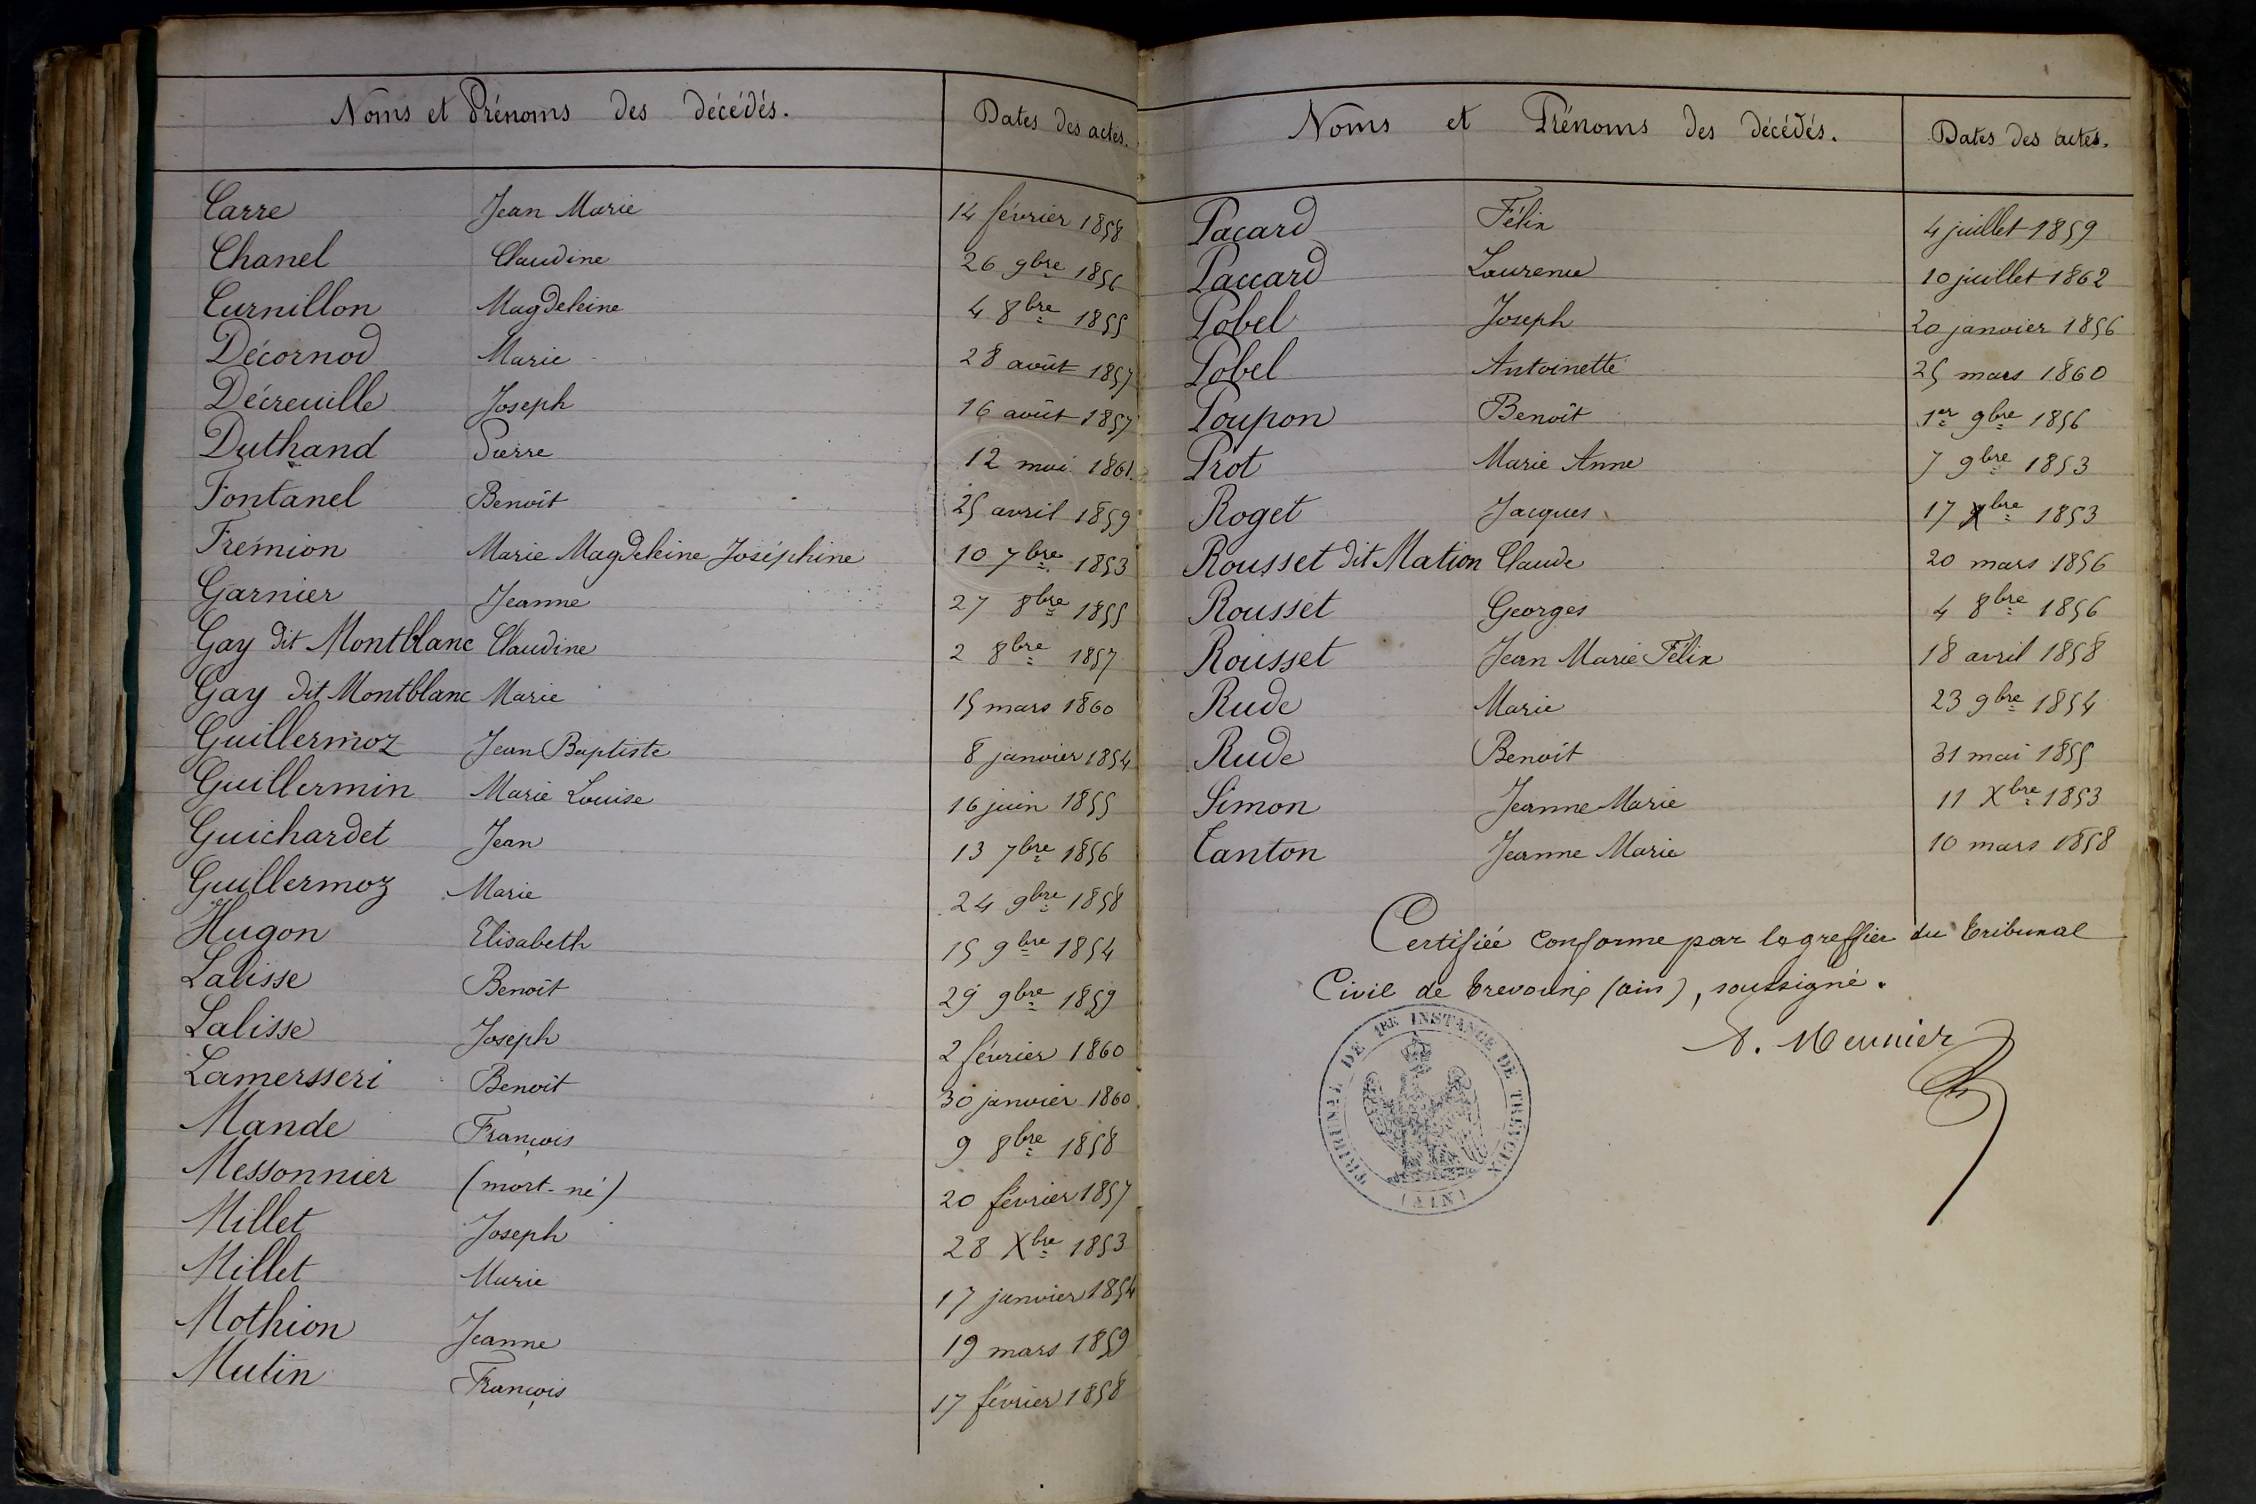 Noms et Prénoms des décédés. Dates des actes.
Carre Jean Marie 14 février 1858
Chanel Claudine 26 9bre 1856
Curnillon Magdeleine 4 8bre 1855
Décornod Marie 28 août 1857
Décreuille Joseph 16 août 1857
Duthand Pierre 12 mai 1861.
Fontanel Benoît 25 avril 1859
Frémion Marie Magdeleine Joséphine 10 7bre 1853
Garnier Jeanne 27 8bre 1855
Gay dit Montblanc Claudine 2 8bre 1857
Gay dit Montblanc Marie 15 mars 1860
Guillermoz Jean Baptiste 8 janvier 1854
Guillermin Marie Louise 16 juin 1855
Guichardet Jean 13 7bre 1856
Guillermoz Marie 24 9bre 1858
Hugon Elisabeth 15 9bre 1854
Lalisse Benoît 29 9bre 1859
Lalisse Joseph 2 février 1860
Lamersseri Benoît 30 janvier 1860
Mande François 9 8bre 1858
Messonnier (mort-né) 20 février 1857
Millet Joseph 28 Xbre 1853
Millet Marie 17 janvier 1854
Mothion Jeanne 19 mars 1859
Mutin François 17 février 1858
Noms et Prénoms des décédés. Dates des actes.
Pacard Félix 4 juillet 1859
Paccard Laurence 10 juillet 1862
Pobel Joseph 20 janvier 1856
Pobel Antoinette 25 mars 1860
Poupon Benoît 1er 9bre 1856
Prot Marie Anne 7 9bre 1853
Roget Jacques 17 Xbre 1853
Rousset dit Mation Claude 20 mars 1856
Rousset Georges 4 8bre 1856
Rousset Jean Marie Félix 18 avril 1858
Rude Marie 23 9bre 1854
Rude Benoît 31 mai 1855
Simon Jeanne Marie 11 Xbre 1853
Tanton Jeanne Marie 10 mars 1858
Certifiée conforme par le greffier du tribunal
Civil de Trevoux (ain), soussigné.
A. Meunier
TRIBUNAL DE 1RE INSTANCE DE TREVOUX
(AIN)